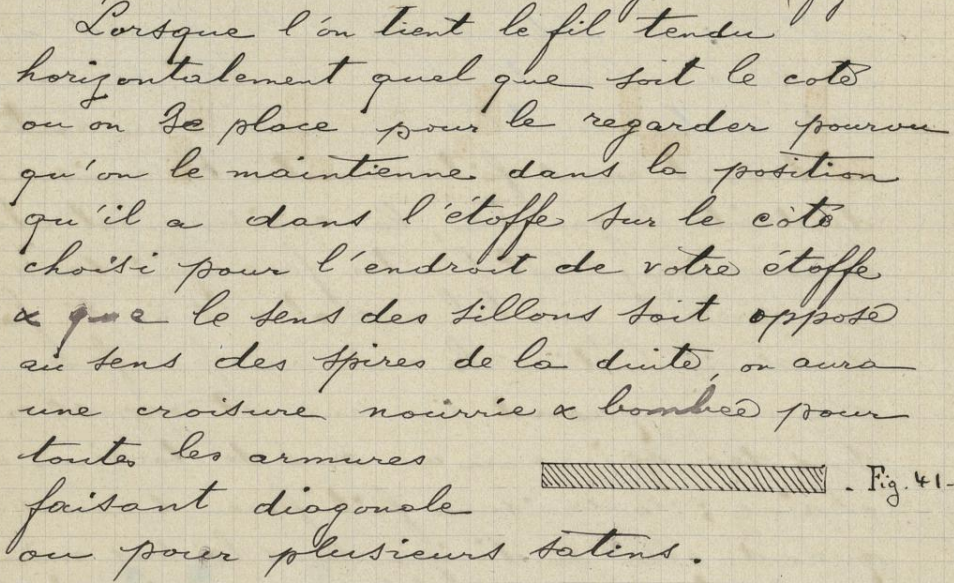 Lorsque l'on tient le fil tendu
horizontalement quel que soit le coté
ou on se place pour le regarder pourvu
qu'on le maintienne dans la position
qu'il a dans l'étoffe sur le côté
choisi pour l'endroit de votre étoffe
& que le sens des sillons soit opposé
au sens des spires de la duite, on aura
une croisure nourrie & bombée pour
toutes les armures
faisant diagonale
ou pour plusieurs satins.
. Fig. 41-